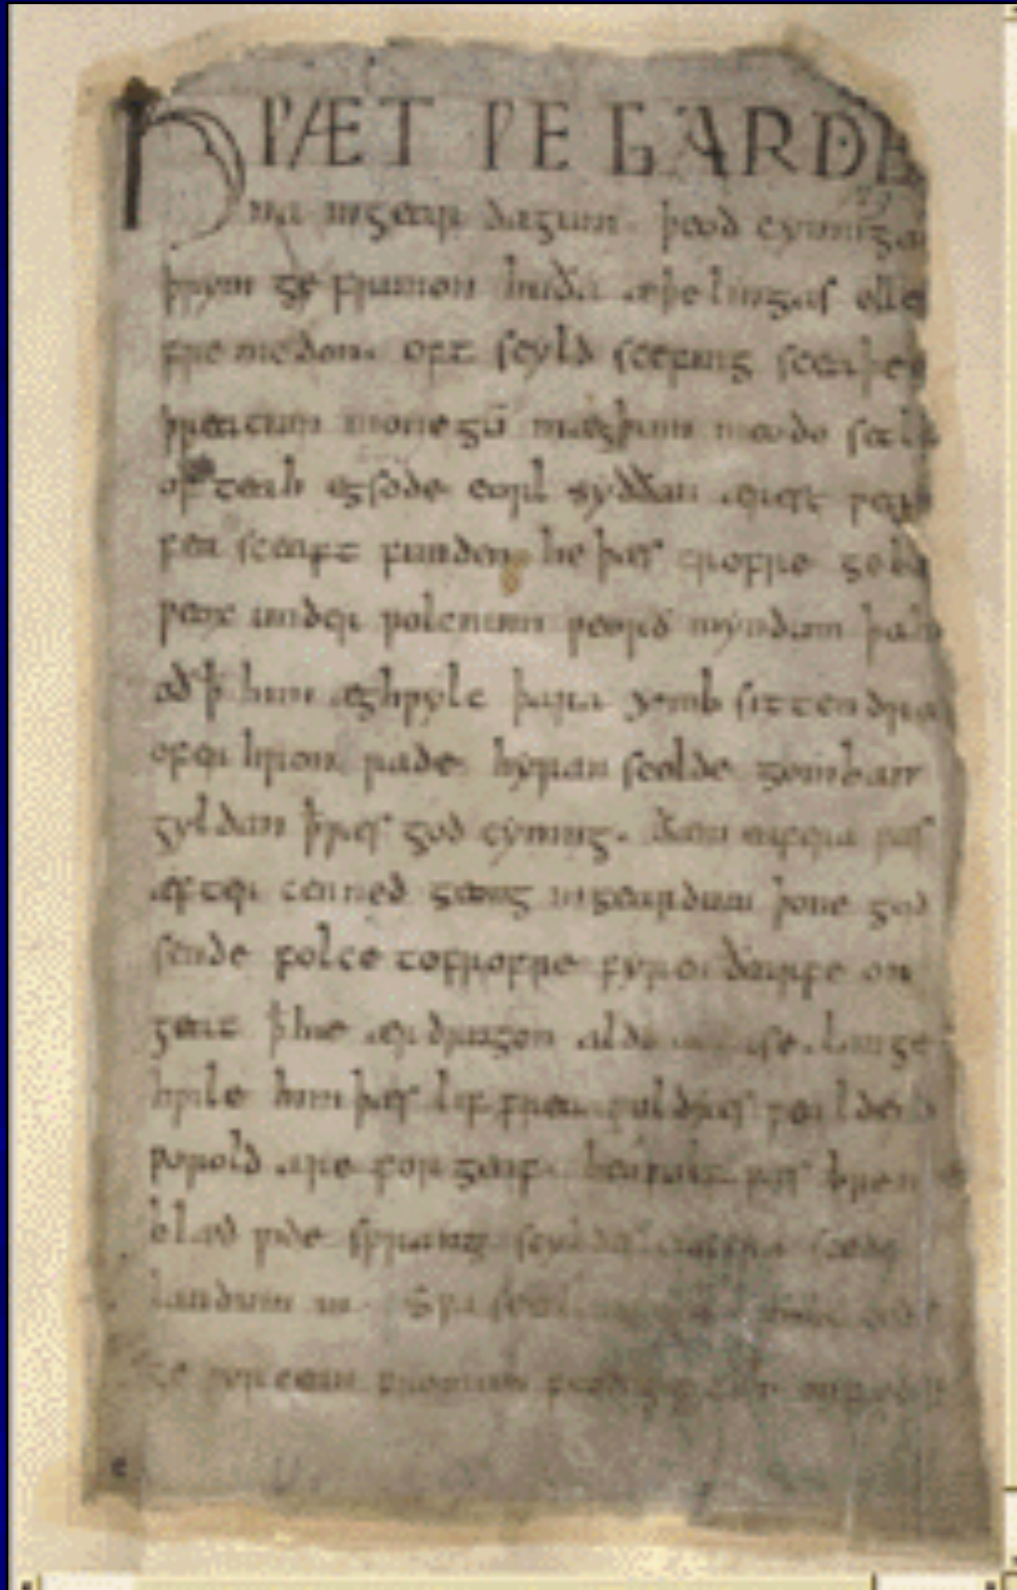 HǷÆT ǷE GARDE
na ingear dagum. þeod cyninga
þrym ge frunon huða æþelingas elle
fre medon. oft scyld scefing sceaþe
þreatum monegū mægþum meodo setl
of teah egsode eorl syððan ærest ƿea
fea sceaft funden he þæs frofre geba
ƿeox under ƿolcnum ƿeorð myndum þah
oð ꝥ him æghƿylc þara ymb sittendra
ofer hron rade hyran scolde gomban
gyldan ꝥƿæs god cyning. ðæm eafera ƿæs
æfter cenned geong ingeardum þone god
sende folce tofrofre fyren ðearfe on
geat ꝥ hie ær drugon aldor ase. lange
hƿile him þæs lif frea ƿuldres ƿealdend
ƿorold are for geaf. beoƿulf ƿæs breme
blæd ƿide sprang scyldes eafera scede
landum in. Sƿa sceal